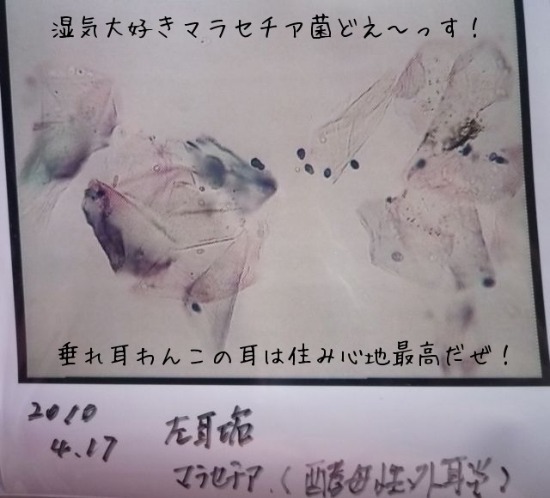 湿気大好きマラセチア菌どえ～っす！
垂れ耳わんこの耳は住み心地最高だぜ！
2010
4.17
左耳垢
マラセチア（酵母性外耳炎）